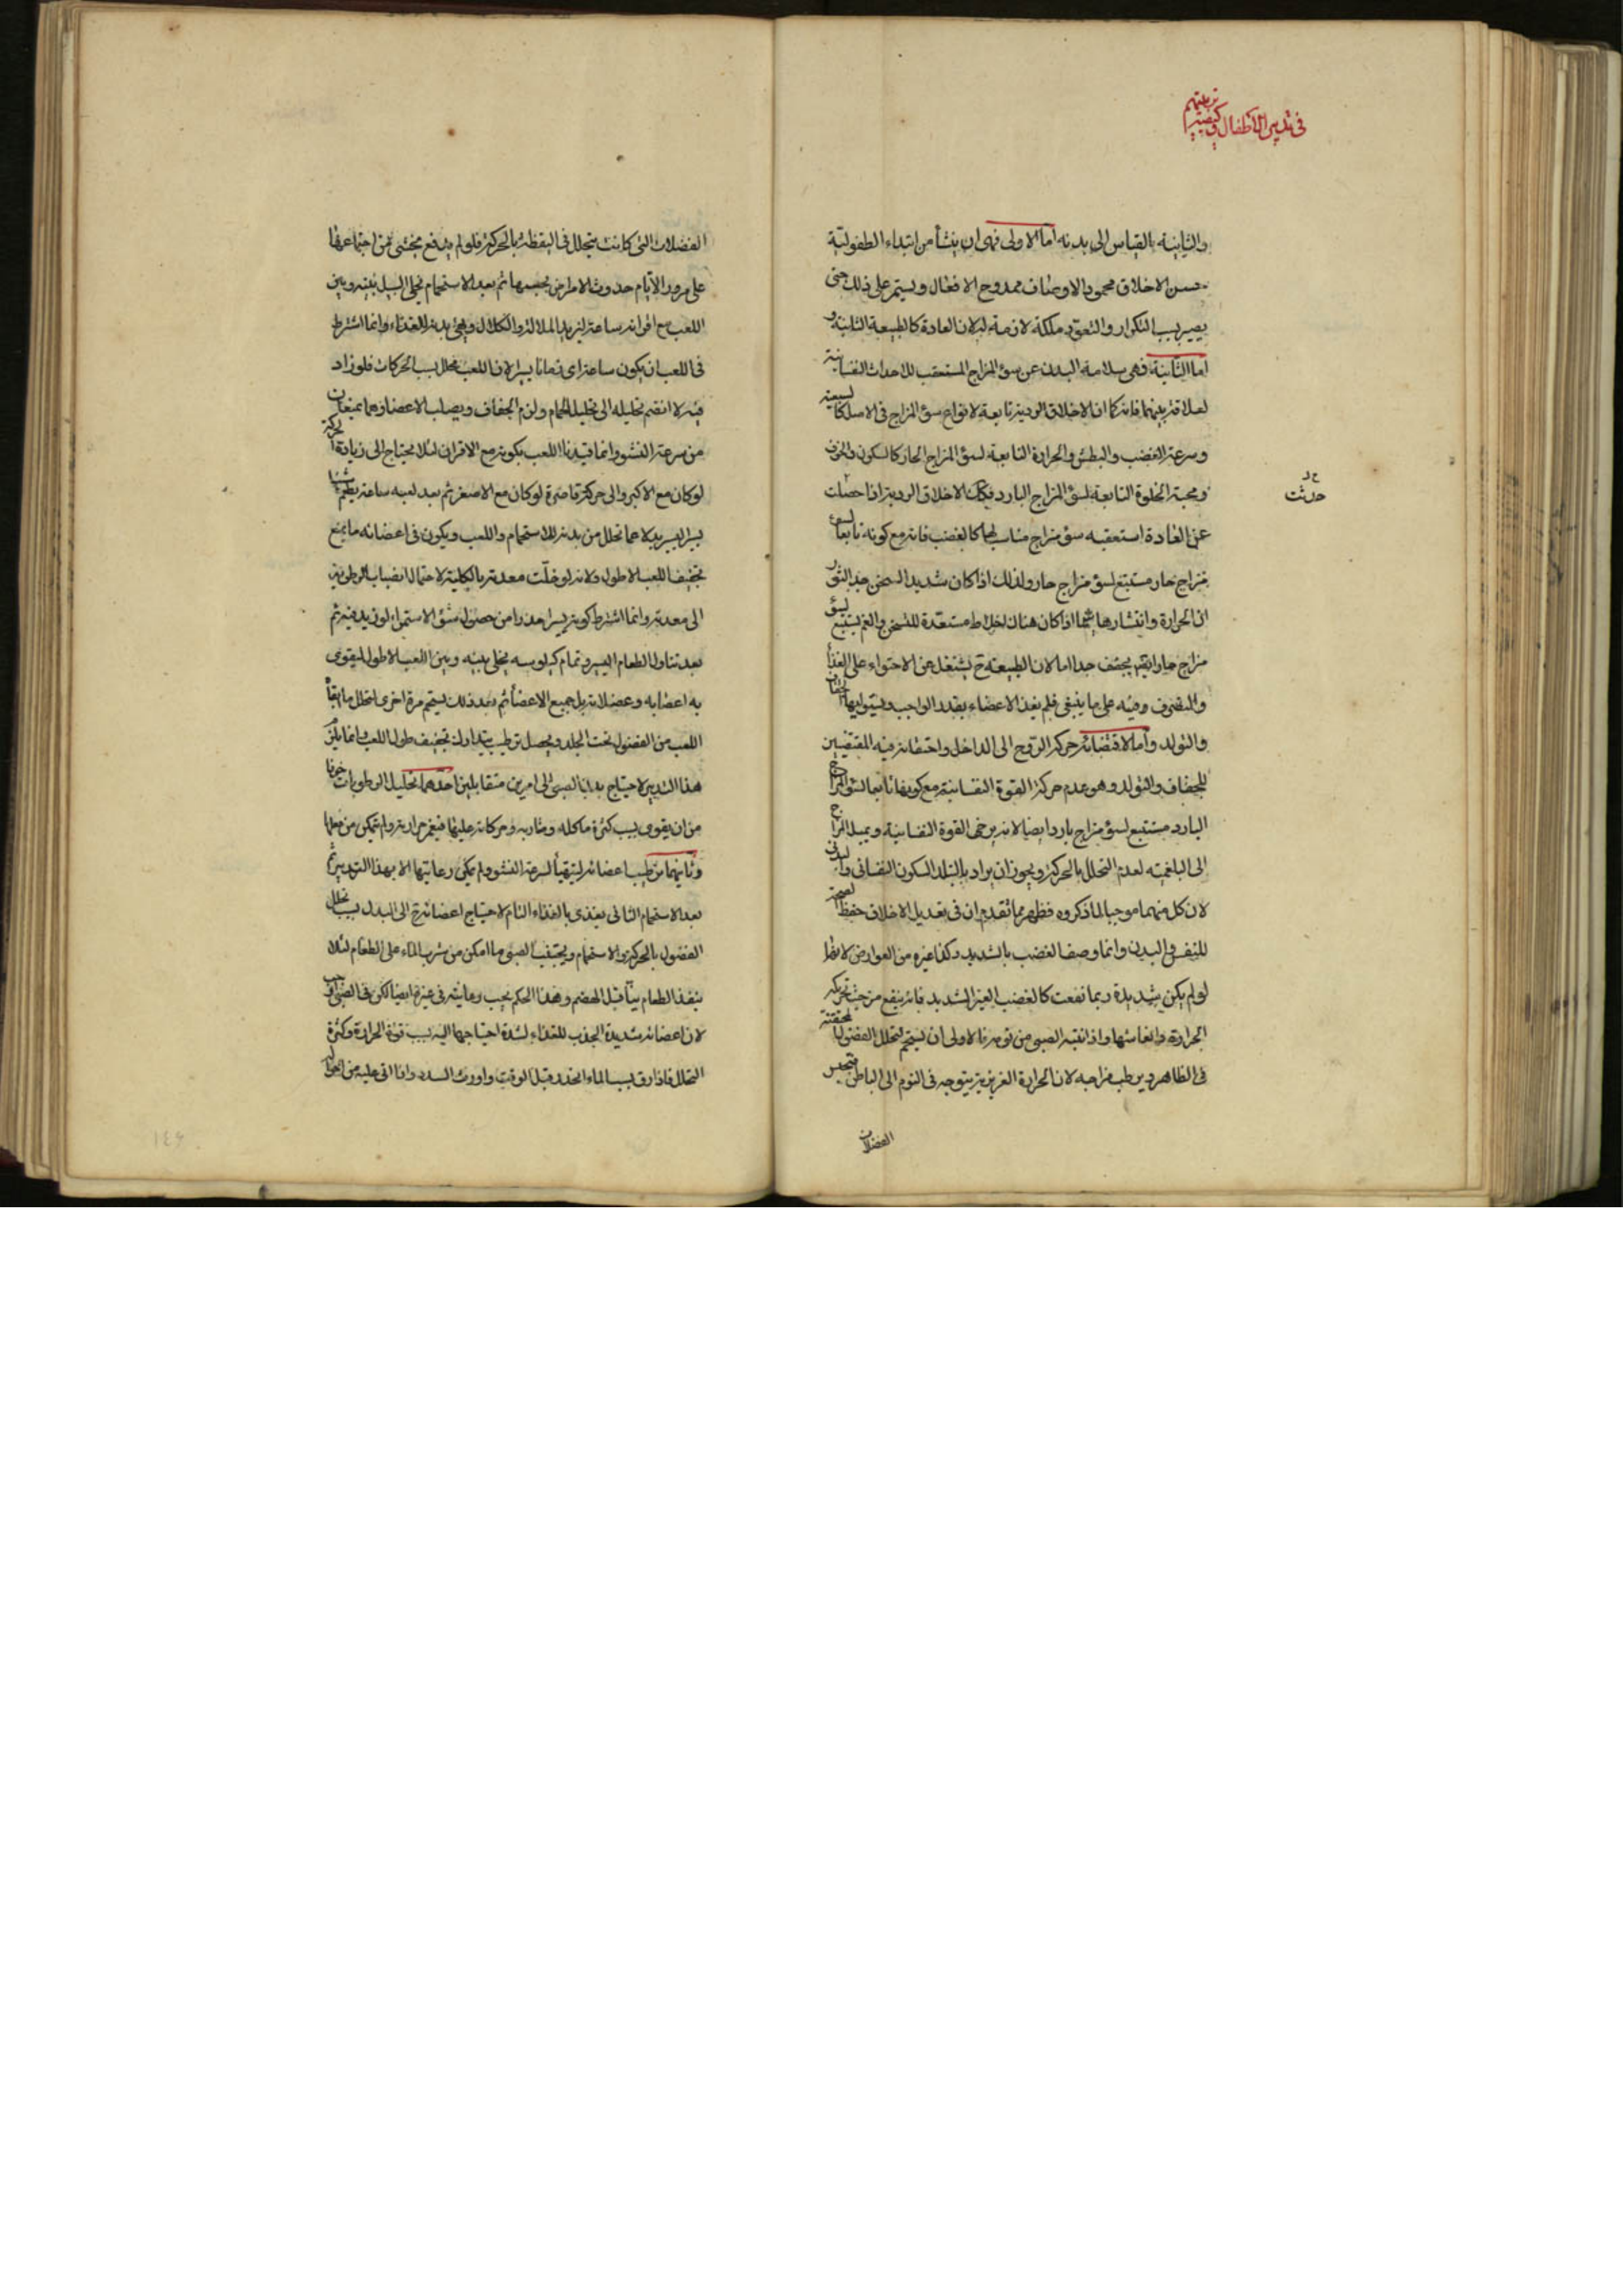 في تدبير الاطفال وكيفية تربيتهم
والثانية بالقياس الى بدنه اما الاولى فهى ان ينشأ من ابتداء الطفولية
حسن الاخلاق محمود الاوصاف ممدوح الافعال ويستمر على ذلك حتى
يصير بسبب التكرار والتعود ملكة لازمة له لان العادة كالطبيعة الثانية و
اما الثانية فهى سلامة البدن عن سوء المزاج المستعقب للاحداث النفسانية
لعلاقة بينهما فانه كما ان الاخلاق الردية تابعة لانواع سوء المزاج فى الاصل كالسبعية
وسرعة الغضب والبطش والحرارة التابعة لسوء المزاج الحار كالسكون والخوف
ومحبة الخلوة التابعة لسوء المزاج البارد فكذلك الاخلاق الردية اذا حصلت
حدثت
عن العادة استعقبه سوء مزاج مناسب لها كالغضب فانه مع كونه تابعا لسوء
مزاج حار مستتبع لسوء مزاج حار ولذلك اذا كان شديدا يسخن جدا لثوران
الحرارة وانتشارها سيما اذا كان هناك اخلاط مستعدة للتسخن والغم يستتبع لسوء
مزاج حار ايضا يجفف جدا اما لان الطبيعة ح يشتغل عن الاحتواء على الغذاء
والتصرف فيه على ما ينبغى فلم يغذ الاعضاء بقدر الواجب ويستولى عليها الجفاف
والتولد واما لاقتضائه حركة الروح الى الداخل واحتقانه فيه المقتضيين
للجفاف والتولد وهو عدم حركة القوة النفسانية مع كونها تابعا لسوء المزاج
البارد مستتبع لسوء مزاج بارد ايضا لانه يرخى القوة النفسانية ويميل المزاج
الى البلغمية لعدم التحلل بالحركة ويجوز ان يراد بالتبلد السكون النفسانى والبدنى
لان كل منهما موجب لما ذكروه فظهر مما تقدم ان فى تعديل الاخلاق حفظ الصحة
للنفس والبدن وانما وصف الغضب بالشديد وكذا غيره من العوارض لانها
لو لم يكن شديدة ربما نفعت كالغضب الغير الشديد فانه ينفع من حيث تحريكه
الحرارة وانعاشها واذا انتبه الصبى من نومه فالاولى ان يستحم لتحلل الفضول المحتقنة
فى الظاهر ويرطب مزاجه لان الحرارة الغريزية يتوجه فى النوم الى الباطن فتحبس
الفضلات
الفضلات التى كانت يتحلل فى اليقظة بالحركة فلو لم يدفع يخشى من اجتماعها
على مرور الايام حدوث الامراض بحسبها ثم بعد الاستحمام يخلى السبيل بينه وبين
اللعب مع اقرانه ساعة ليزيد الملالة والكلال ويهيئ بدنه للغذاء وانما اشترط
فى اللعب ان يكون ساعة اى زمانا يسيرا لان اللعب محلل بسبب الحركات فلو زاد
فيه لانضم تحليله الى تحليل الحمام ولزم الجفاف ويصلب الاعضاء وهما يمنعان
من سرعة النشو وانما قيدنا اللعب بكونه مع الاقران لئلا يحتاج الى زيادة الحركة
لو كان مع الاكبر والى حركة قاصرة لو كان مع الاصغر ثم بعد لعبه ساعة يطعم شيئا
يسيرا ليصير بدلا عما تحلل من بدنه بالاستحمام واللعب ويكون فى اعضائه ما يمنع
تجفيف اللعب الاطول ولانه لو خلت معدته بالكلية لاحتمال انصباب الرطوبة
الى معدته وانما اشترط كونه يسيرا حذرا من حصول سوء الاستمراء لو زيد فيه ثم
بعد تناول الطعام اليسير وتمام كيلوسه يخلى بينه وبين اللعب الاطول ليقوى
به اعصابه وعضلاته بل جميع الاعضاء ثم بعد ذلك يستحم مرة اخرى لتحلل ما ابقاه
اللعب من الفضول تحت الجلد ويحصل ترطيب يتدارك تجفيف طول اللعب وانما يلزم
هذا التدبير لاحتياج بدن الصبى الى امرين متقابلين احدهما تحليل الرطوبات خوفا
من ان يقوى بسبب كثرة مأكله ومشاربه وحركاته عليها فيغمر حرارته ولم يتمكن من فعلها
وثانيهما ترطيب اعضائه ليتهيأ لسرعة النشو ولم يمكن رعايتها الا بهذا التدبير ثم
بعد الاستحمام الثانى يغذى بالغذاء التام لاحتياج اعضائه ح الى البدل بسبب تحلل
الفضول بالحركة والاستحمام ويجتنب الصبى ما امكن من شرب الماء على الطعام لئلا
ينفذ الطعام نيئا قبل الهضم وهذا الحكم يجب رعايته فى غيره ايضا لكن فى الصبى اوجب
لان اعضائه شديدة الجذب للغذاء لشدة احتياجها اليه بسبب قوة الحرارة وكثرة
التحلل فاذا رق بسبب الماء انحدر قبل الوقت واورث السدد واذا اتى عليه من احواله